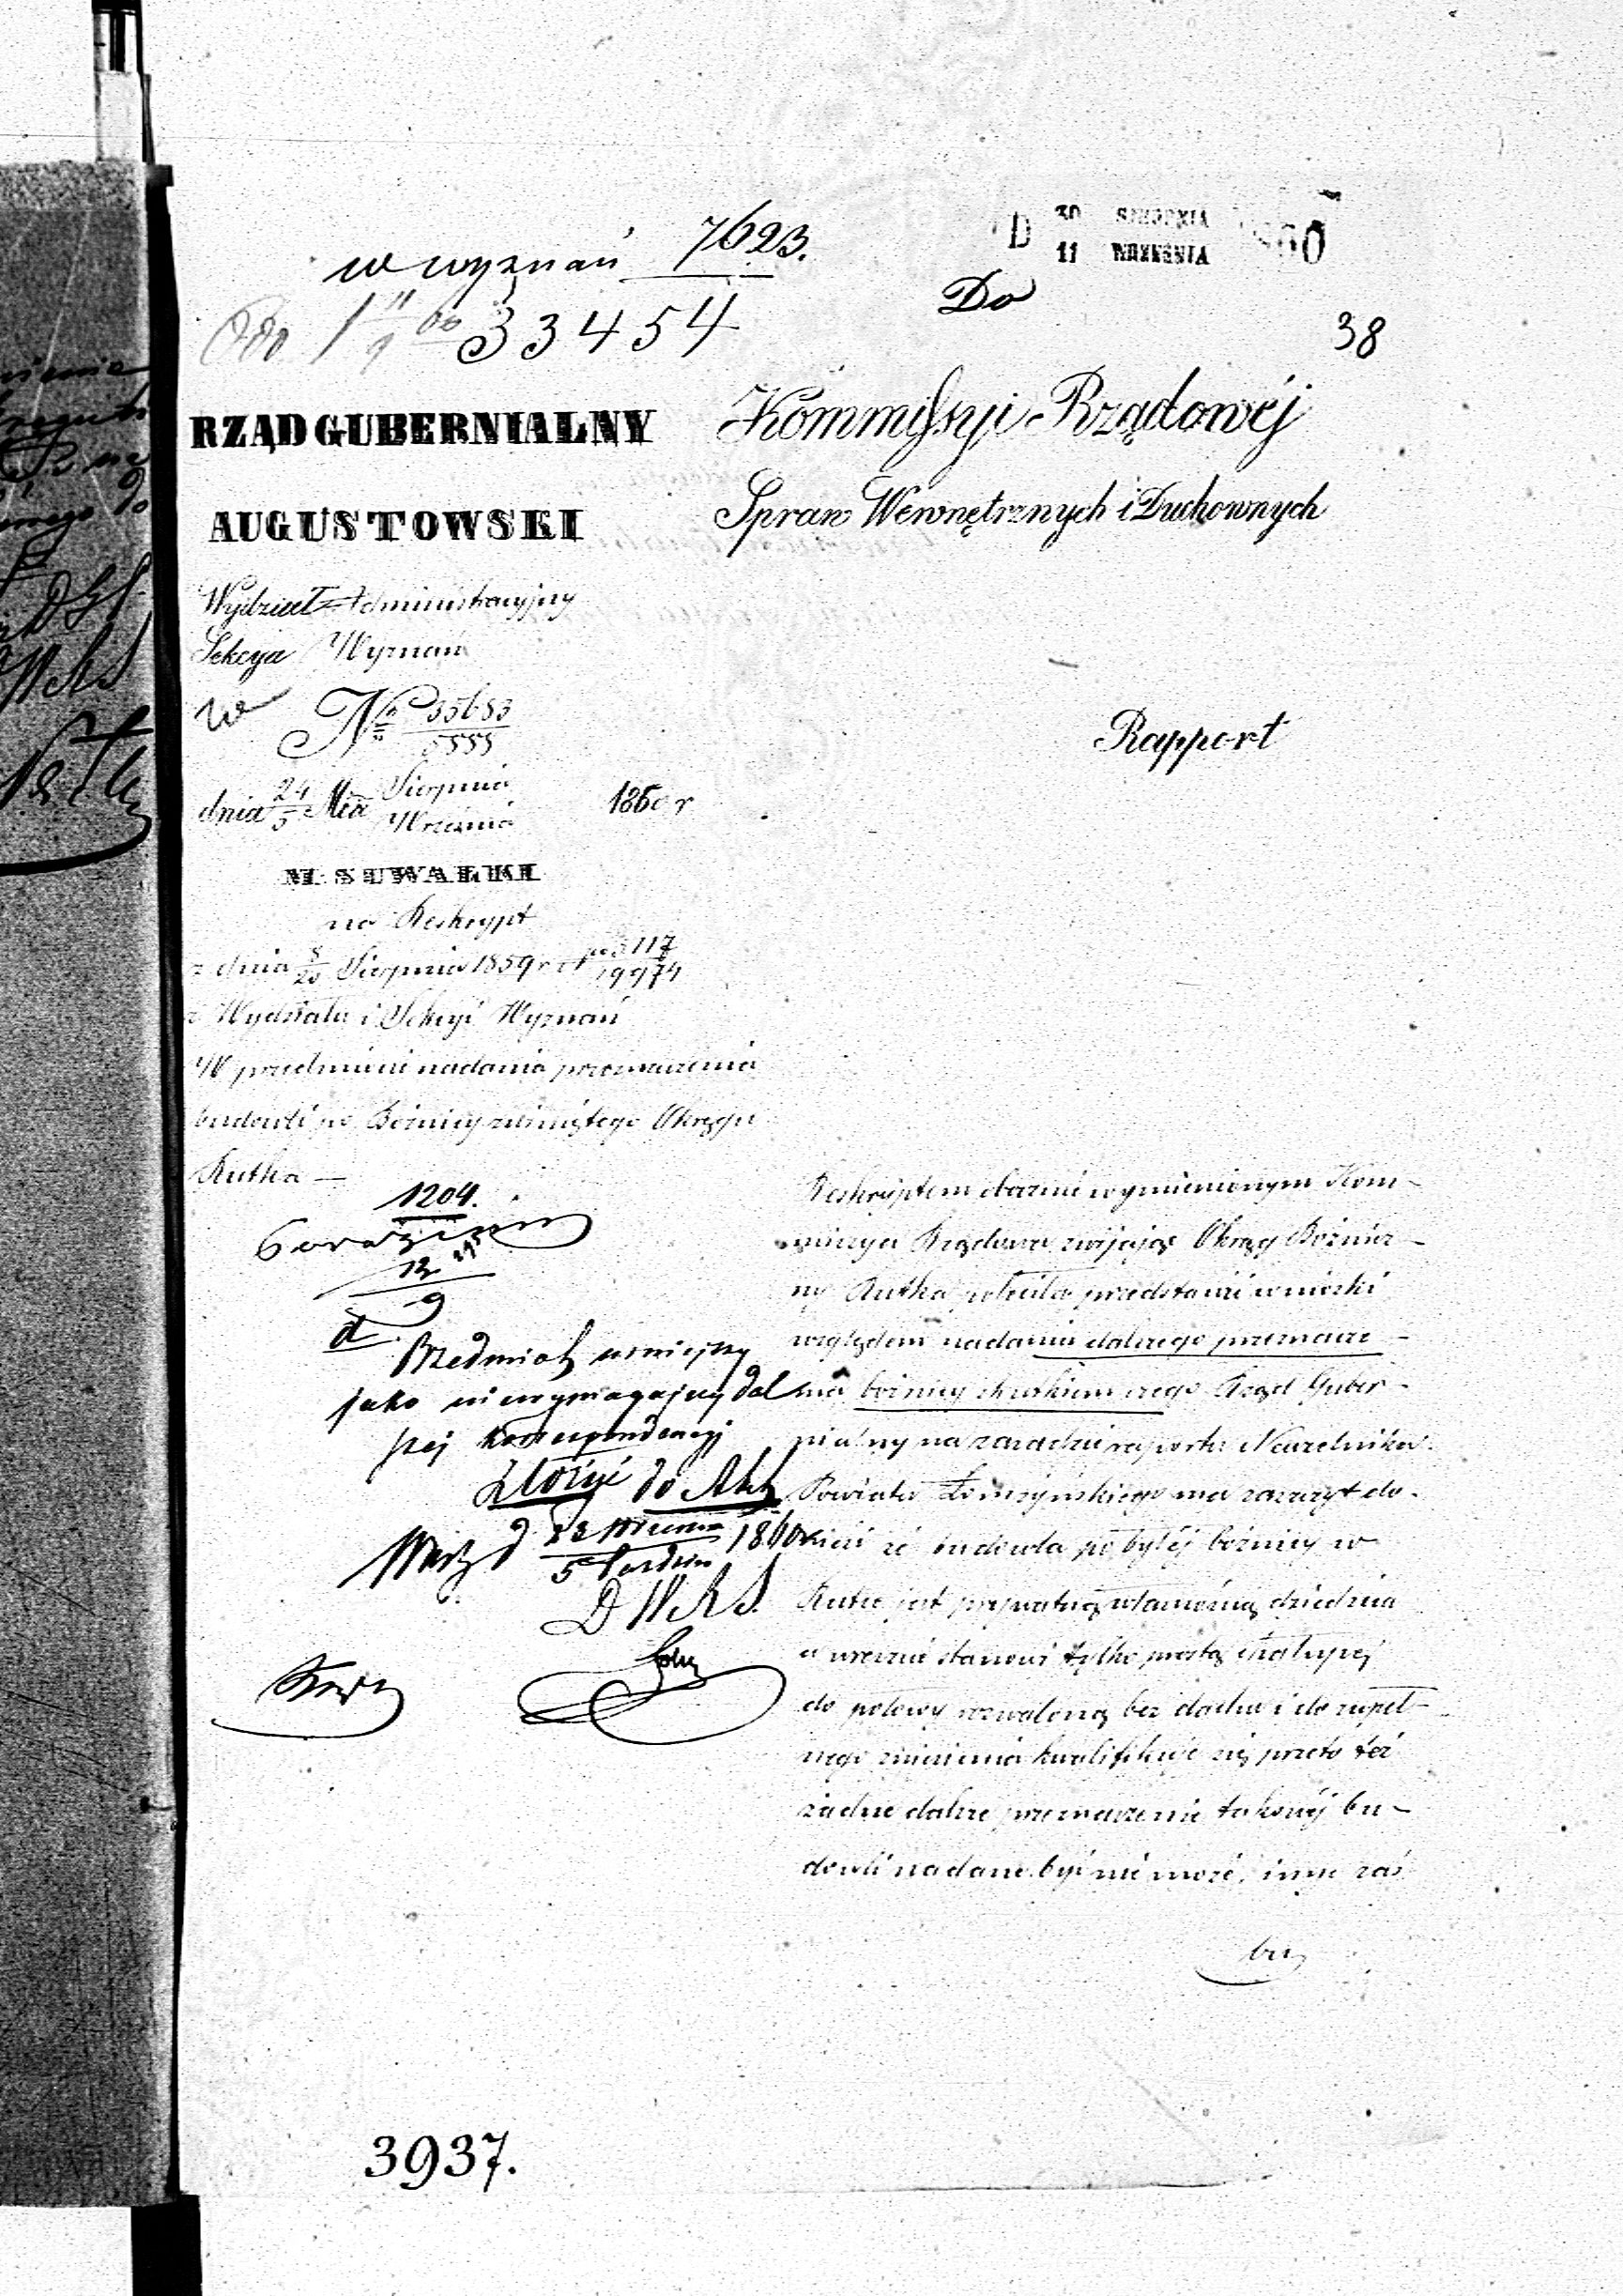 w wyznań 7623.
33454
D 30 SIERPNIA
11 WRZEŚNIA 1860
Do
38
RZĄD GUBERNIALNY
AUGUSTOWSKI
Kommissyi Rządowéj
Spraw Wewnętrznych i Duchownych
Wydział Administracyjny
Sekcya Wyznań
w
No 35683
dnia 24/5 Mca Sierpnia Września 1860 r
M. SUWAŁKI
na Reskrypt
z dnia 8/20 Sierpnia 1859 r No 3117/19974
z Wydziału i Sekcyi Wyznań
W przedmiocie nadania przeznaczenia
budowli po Bóżnicy zwiniętego Okręgu
Rutka —
Rapport
1204.
12/9
d
Przedmiot niniejszy
jako niewymagający dal
szej korrespondencyi
złożyć do Akt
Warsz d 23 Września 1860
5 Paździer
D W R S.
Reskryptem obocznie wymienionym Kom-
missya Rządowa zwijając Okrąg Bóżnicz-
ny Rutka poleciła przedstawić wnioski
względem nadania dalszego przeznacze-
nia bóżnicy skutkiem czego Rząd Guber-
nialny na zasadzie raportu Naczelnika
Powiatu Łomżyńskiego ma zaszczyt do-
nieść że budowla po byłéj bóżnicy w
Rutce jest prywatną własnością dziedzica
a wreszcie stanowi tylko prostą chałupę
do połowy rozwaloną bez dachu i do zupeł-
nego zniesienia kwalifikuje się przeto też
żadne dalsze przeznaczenie takowéj bu-
dowli nadane być nie może, inne zaś
3937.